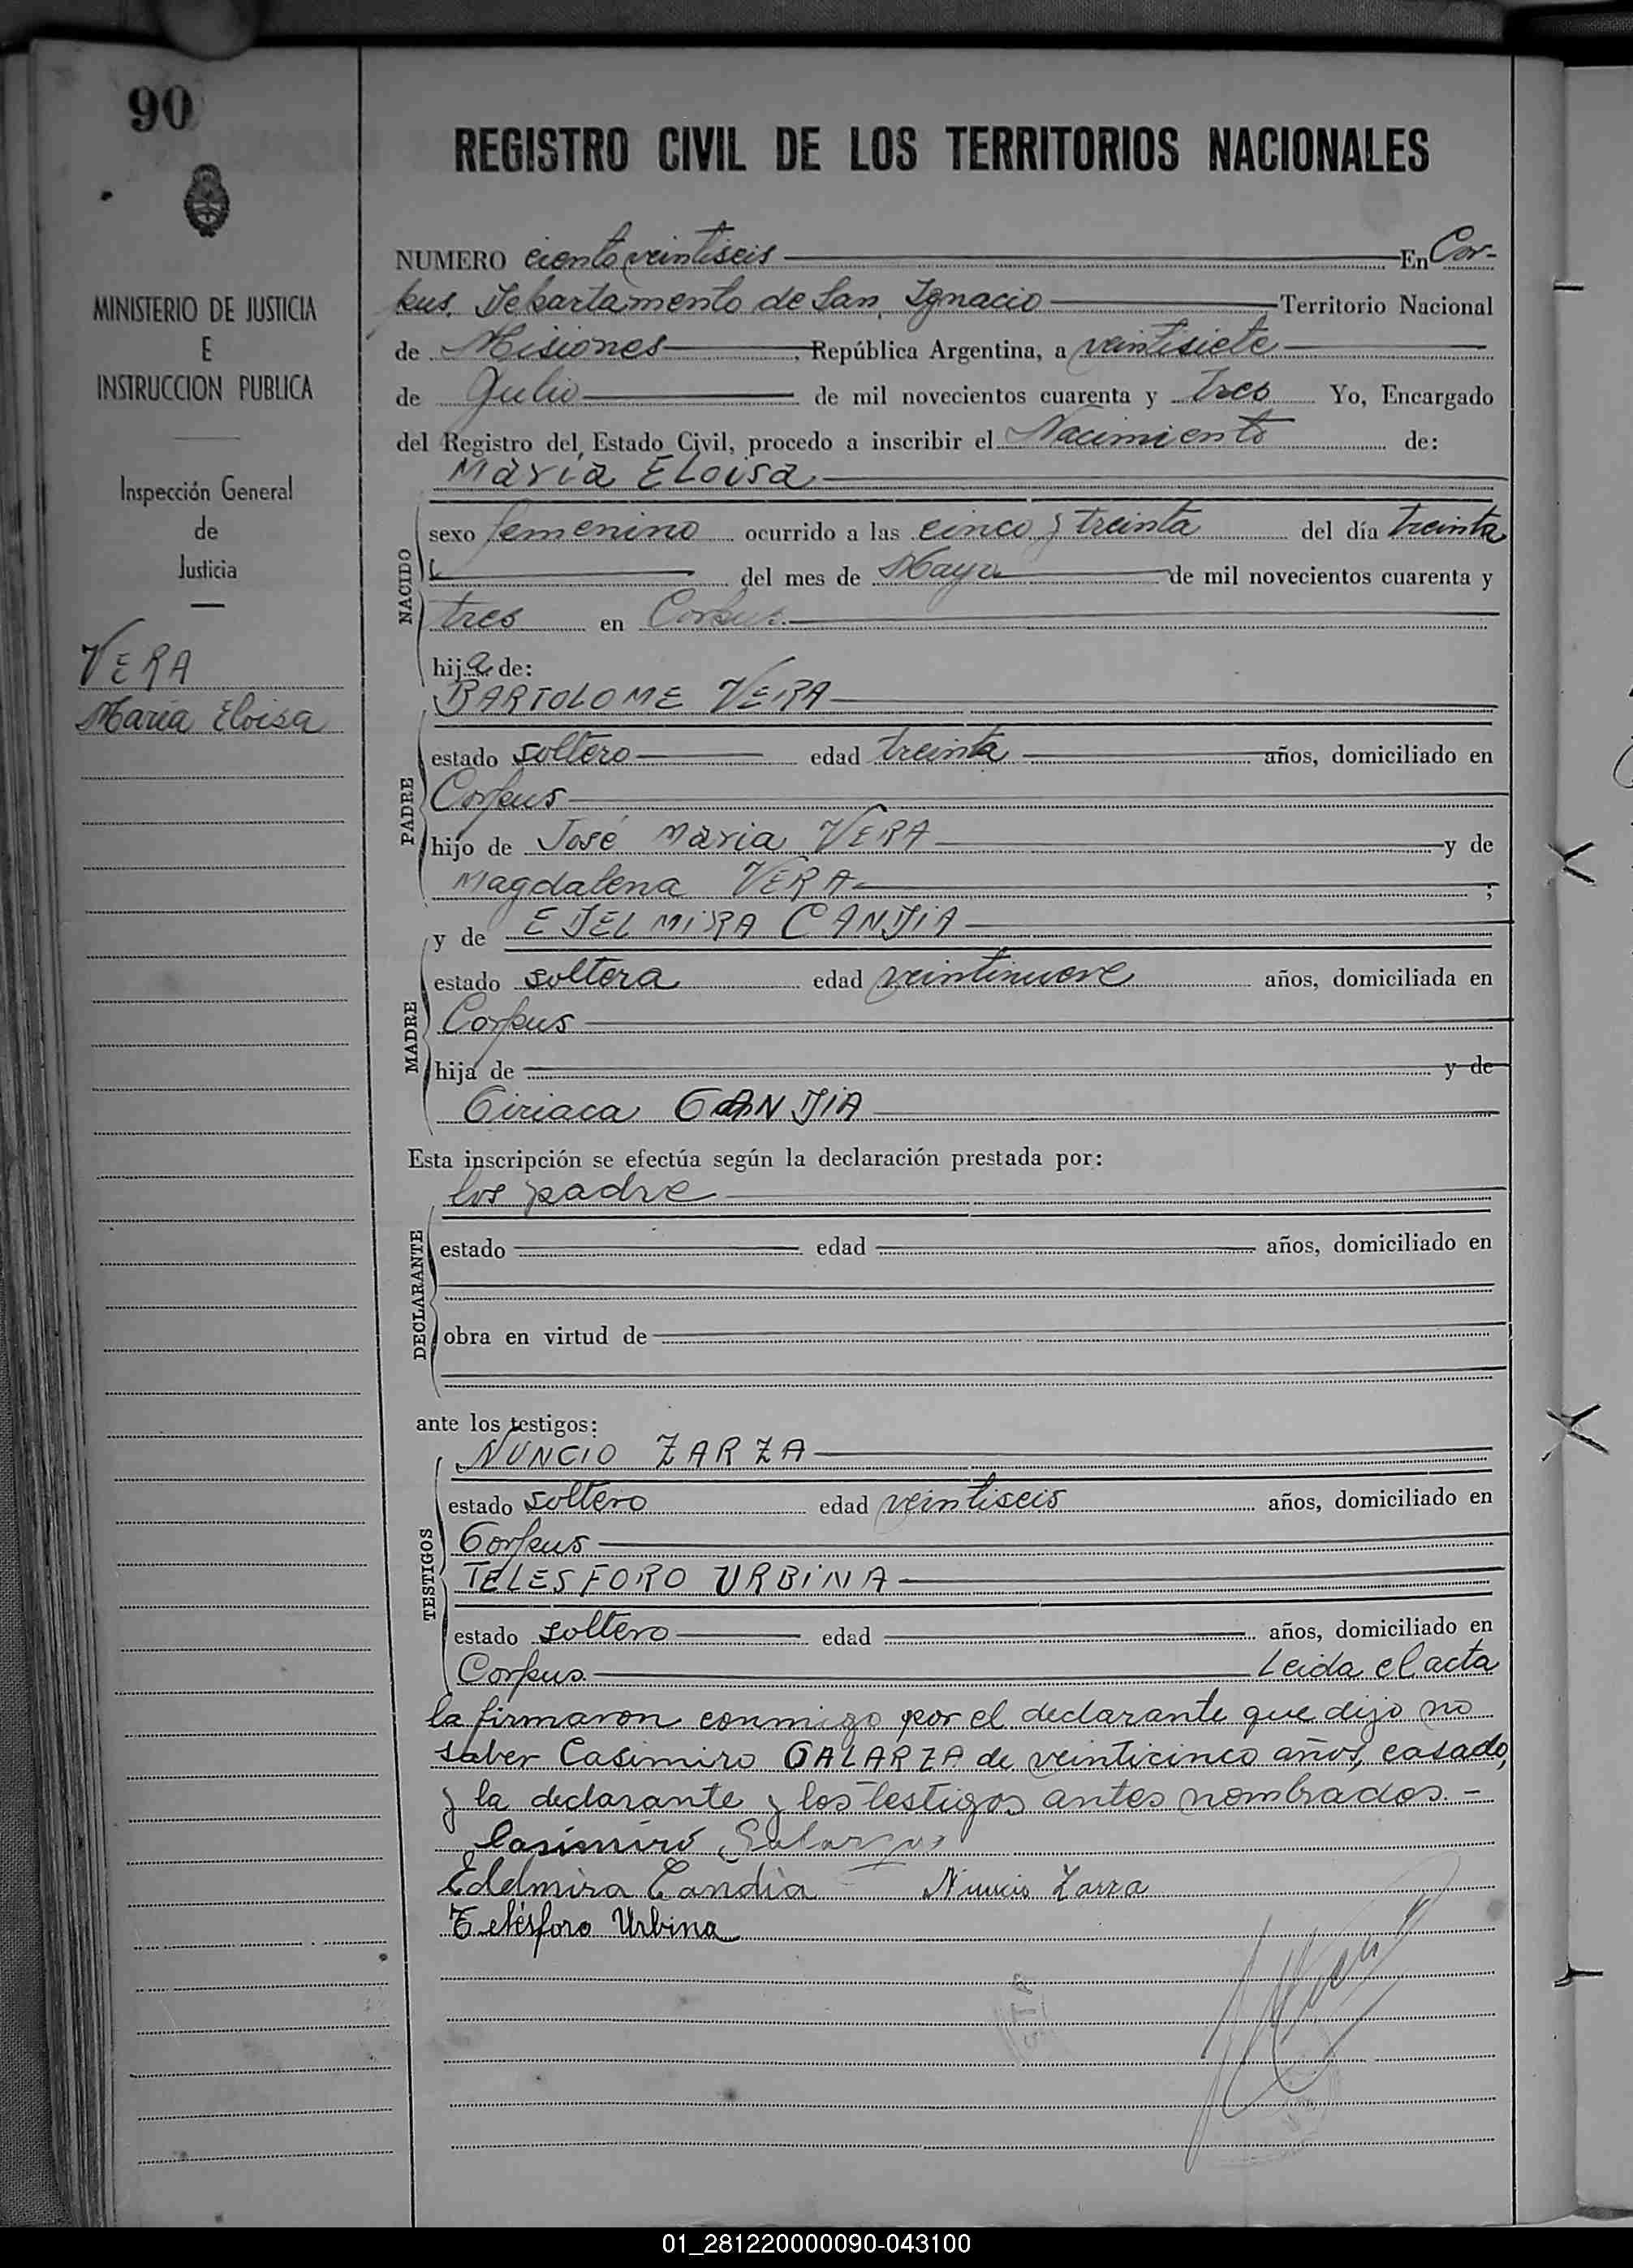 90
MINISTERIO DE JUSTICIA
E
INSTRUCCION PUBLICA
Inspección General
de
Justicia
VERA
Maria Eloisa
REGISTRO CIVIL DE LOS TERRITORIOS NACIONALES
NUMERO ciento veintiseis En Cor-
pus. Departamento de San Ignacio Territorio Nacional
de Misiones, República Argentina, a veintisiete
de Julio de mil novecientos cuarenta y tres Yo, Encargado
del Registro del Estado Civil, procedo a inscribir el Nacimiento de:
Maria ELOISA
NACIDO
sexo femenino ocurrido a las cinco y treinta del día treinta
del mes de Mayo de mil novecientos cuarenta y
tres en Corpus.
hija de:
BARTOLOME VERA
PADRE
estado soltero edad treinta años, domiciliado en
Corpus
hijo de José Maria VERA y de
Magdalena VERA ;
y de EDELMIRA CANDIA
MADRE
estado soltera edad veintinueve años, domiciliada en
Corpus
hija de y de
Ciriaca CANDIA
Esta inscripción se efectúa según la declaración prestada por:
los padre
DECLARANTE
estado edad años, domiciliado en
obra en virtud de
ante los testigos:
NUNCIO ZARZA
TESTIGOS
estado soltero edad veintiseis años, domiciliado en
Corpus
TELESFORO URBINA
estado soltero edad años, domiciliado en
Corpus. Leida el acta
la firmaron conmigo por el declarante que dijo no
saber Casimiro GALARZA de veinticinco años, casado,
y la declarante y los testigos antes nombrados. -
Casimiro Galarza
Edelmira Candia Nuncio Zarza
Telésforo Urbina
01_281220000090-043100